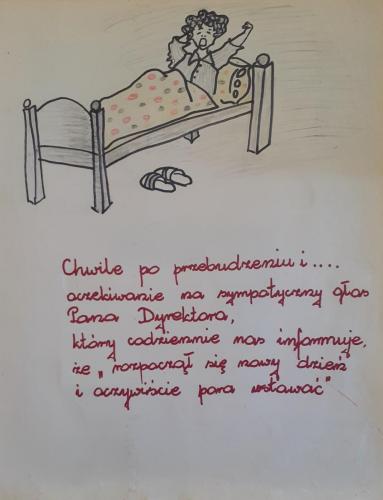 Chwile po przebudzeniu i ....
oczekiwanie na sympatyczny głos
Pana Dyrektora,
który codziennie nas informuje,
że „rozpoczął się nowy dzień
i oczywiście pora wstawać"